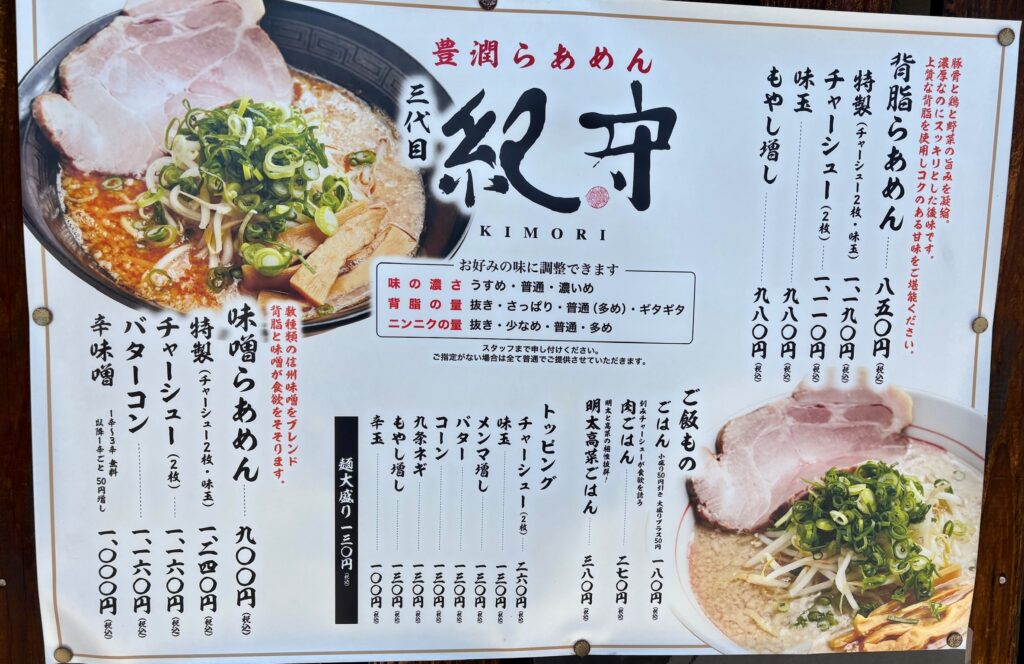 豊潤らあめん
三代目
紀守
KIMORI
お好みの味に調整できます
味の濃さ うすめ・普通・濃いめ
背脂の量 抜き・さっぱり・普通(多め)・ギタギタ
ニンニクの量 抜き・少なめ・普通・多め
スタッフまで申し付けください。
ご指定がない場合は全て普通でご提供させていただきます。
豚骨と鶏と野菜の旨みを凝縮。
濃厚なのにスッキリとした後味です。
上質な背脂を使用しコクのある甘味をご堪能ください。
背脂らあめん 八五〇円(税込)
特製(チャーシュー2枚・味玉) 一、一九〇円(税込)
チャーシュー(2枚) 一、一一〇円(税込)
味玉 九八〇円(税込)
もやし増し 九八〇円(税込)
数種類の信州味噌をブレンド
背脂と味噌が食欲をそそります。
味噌らあめん 九〇〇円(税込)
特製(チャーシュー2枚・味玉) 一、二四〇円(税込)
チャーシュー(2枚) 一、一六〇円(税込)
バターコン 一、一六〇円(税込)
辛味噌 一、〇〇〇円(税込)
1辛〜3辛 無料
以降1辛ごと50円増し
ご飯もの
ごはん 小盛り50円引き 大盛りプラス50円 一八〇円(税込)
刻みチャーシューが食欲を誘う
肉ごはん 二七〇円(税込)
明太と高菜の相性抜群!
明太高菜ごはん 三八〇円(税込)
トッピング
チャーシュー(2枚) 二六〇円(税込)
味玉 一三〇円(税込)
メンマ増し 一三〇円(税込)
バター 一三〇円(税込)
コーン 一三〇円(税込)
九条ネギ 一三〇円(税込)
もやし増し 一三〇円(税込)
辛玉 一〇〇円(税込)
麺大盛り 一三〇円(税込)